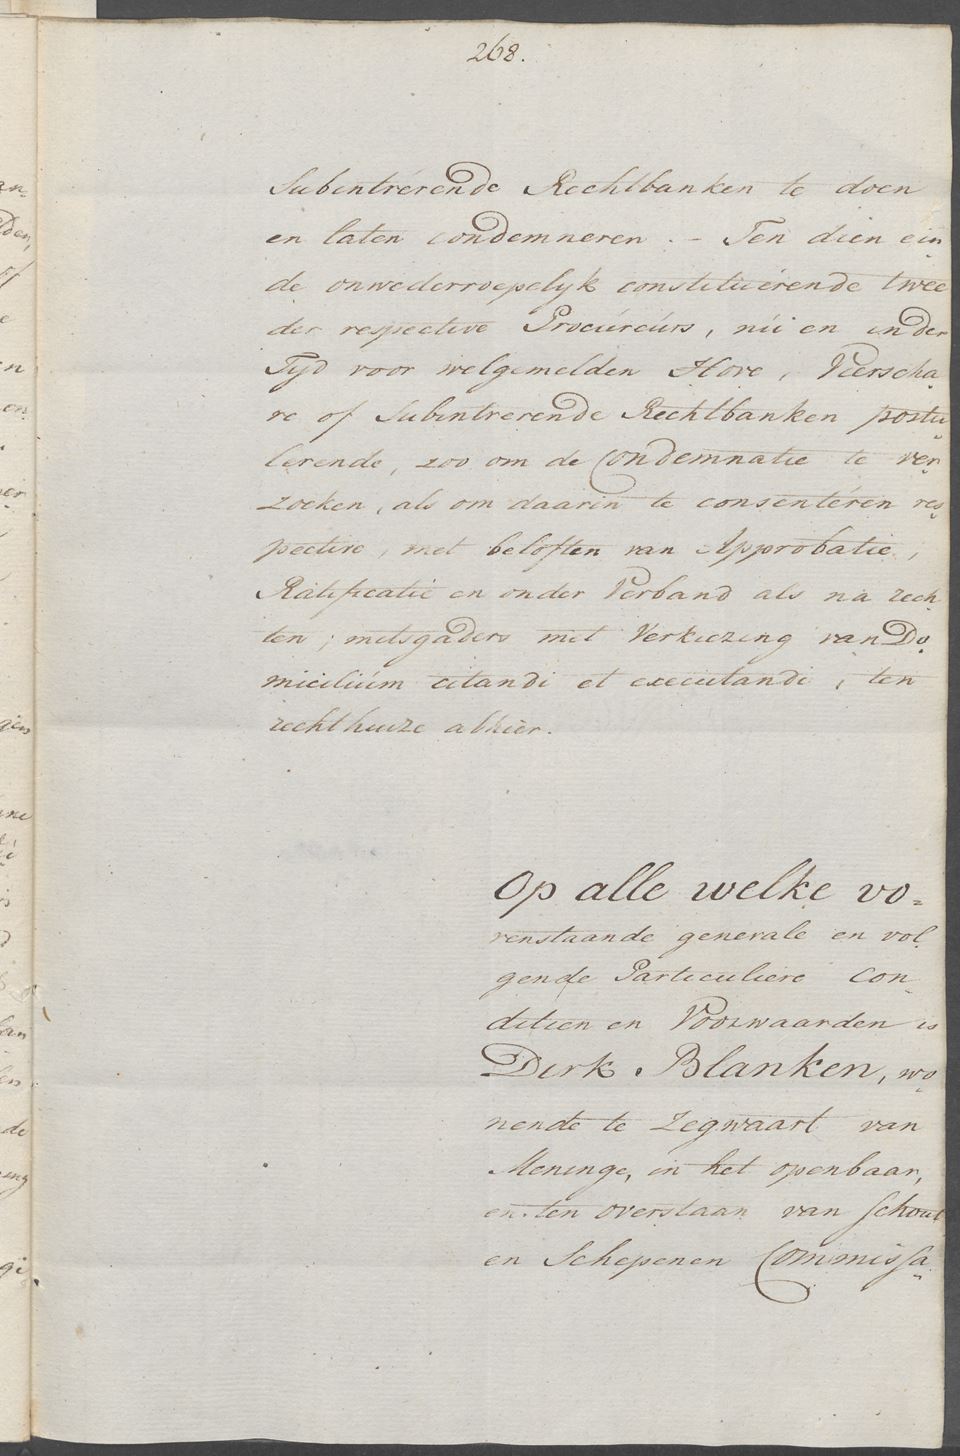 268.
Subintrérende Rechtbanken te doen
en laten Condemneren. – Ten dien ein
de onwederroepelyk constituérende twee
der respective Procúreúrs, nú en in der
Tyd voor welgemelden Hove, Vierscha
re of Subintrerende Rechtbanken postu
lerende, zoo om de Condemnatie te ver
zoeken, als om daarin te consentéren res
pective, met beloften van Approbatie,
Ratificatie en onder Verband als na rech
ten; mitsgaders met Verkiezing van Do
miciliúm citandi et executandi, ten
rechthuize alhier.
Op alle welke vo=
renstaande generale en vol
gende Particuliere Con
ditien en Voorwaarden is
Dirk Blanken, wo
nende te Zegwaart van
Meninge, in het openbaar,
en ten overstaan van Schout
en Schepenen Commissa